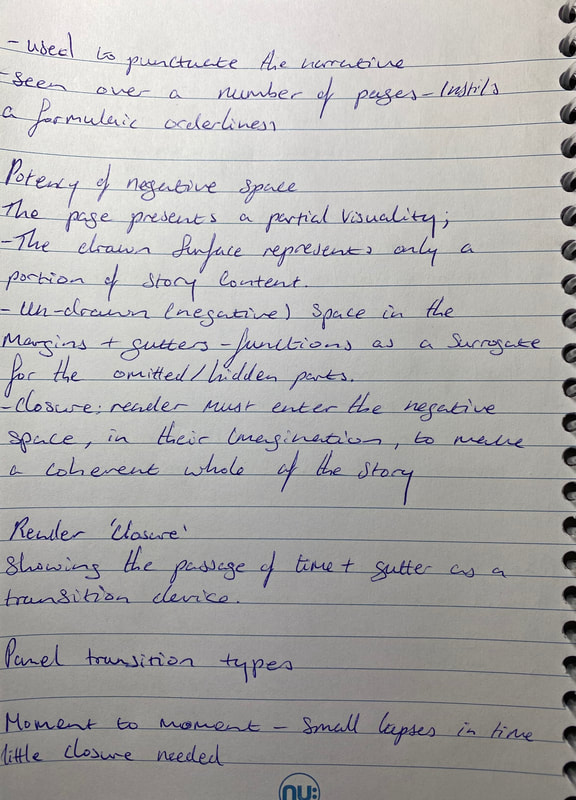 - used to punctuate the narrative
- seen over a number of pages - Instils
a formulaic orderliness
Potency of negative space
The page presents a partial visuality;
- The drawn surface represents only a
portion of story content.
- Un-drawn (negative) space in the
margins + gutters - functions as a surrogate
for the omitted/hidden parts.
- Closure: reader must enter the negative
space, in their imagination, to make
a coherent whole of the story
Reader 'closure'
Showing the passage of time + gutter as a
transition device.
Panel transition types
Moment to moment - small lapses in time
little closure needed
nu: